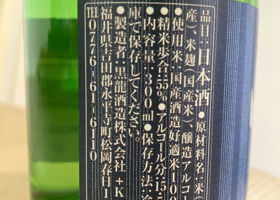 品目:日本酒●原材料名:米(国
産)、米麹(国産米)、醸造アルコー
●使用米:国産酒造好適米100
●精米歩合:55%●アルコール分:15.
●内容量:300ml●保存方法:冷
庫で保存してください。
●製造者:黒龍酒造株式会社+K
福井県吉田郡永平寺町松岡春日1
TEL0776-61-6110